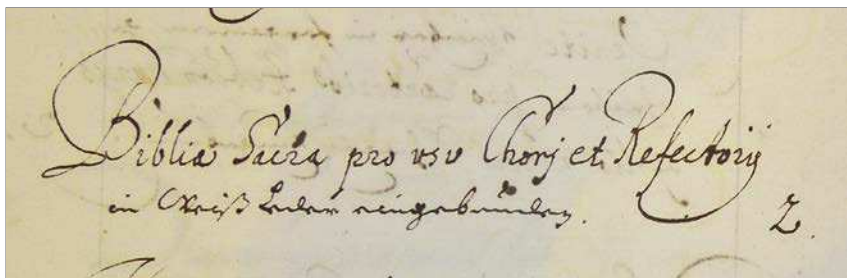 Biblia Sacra pro usu Chorj et Refectorij
in Weiß Leder eingebunden. 2.